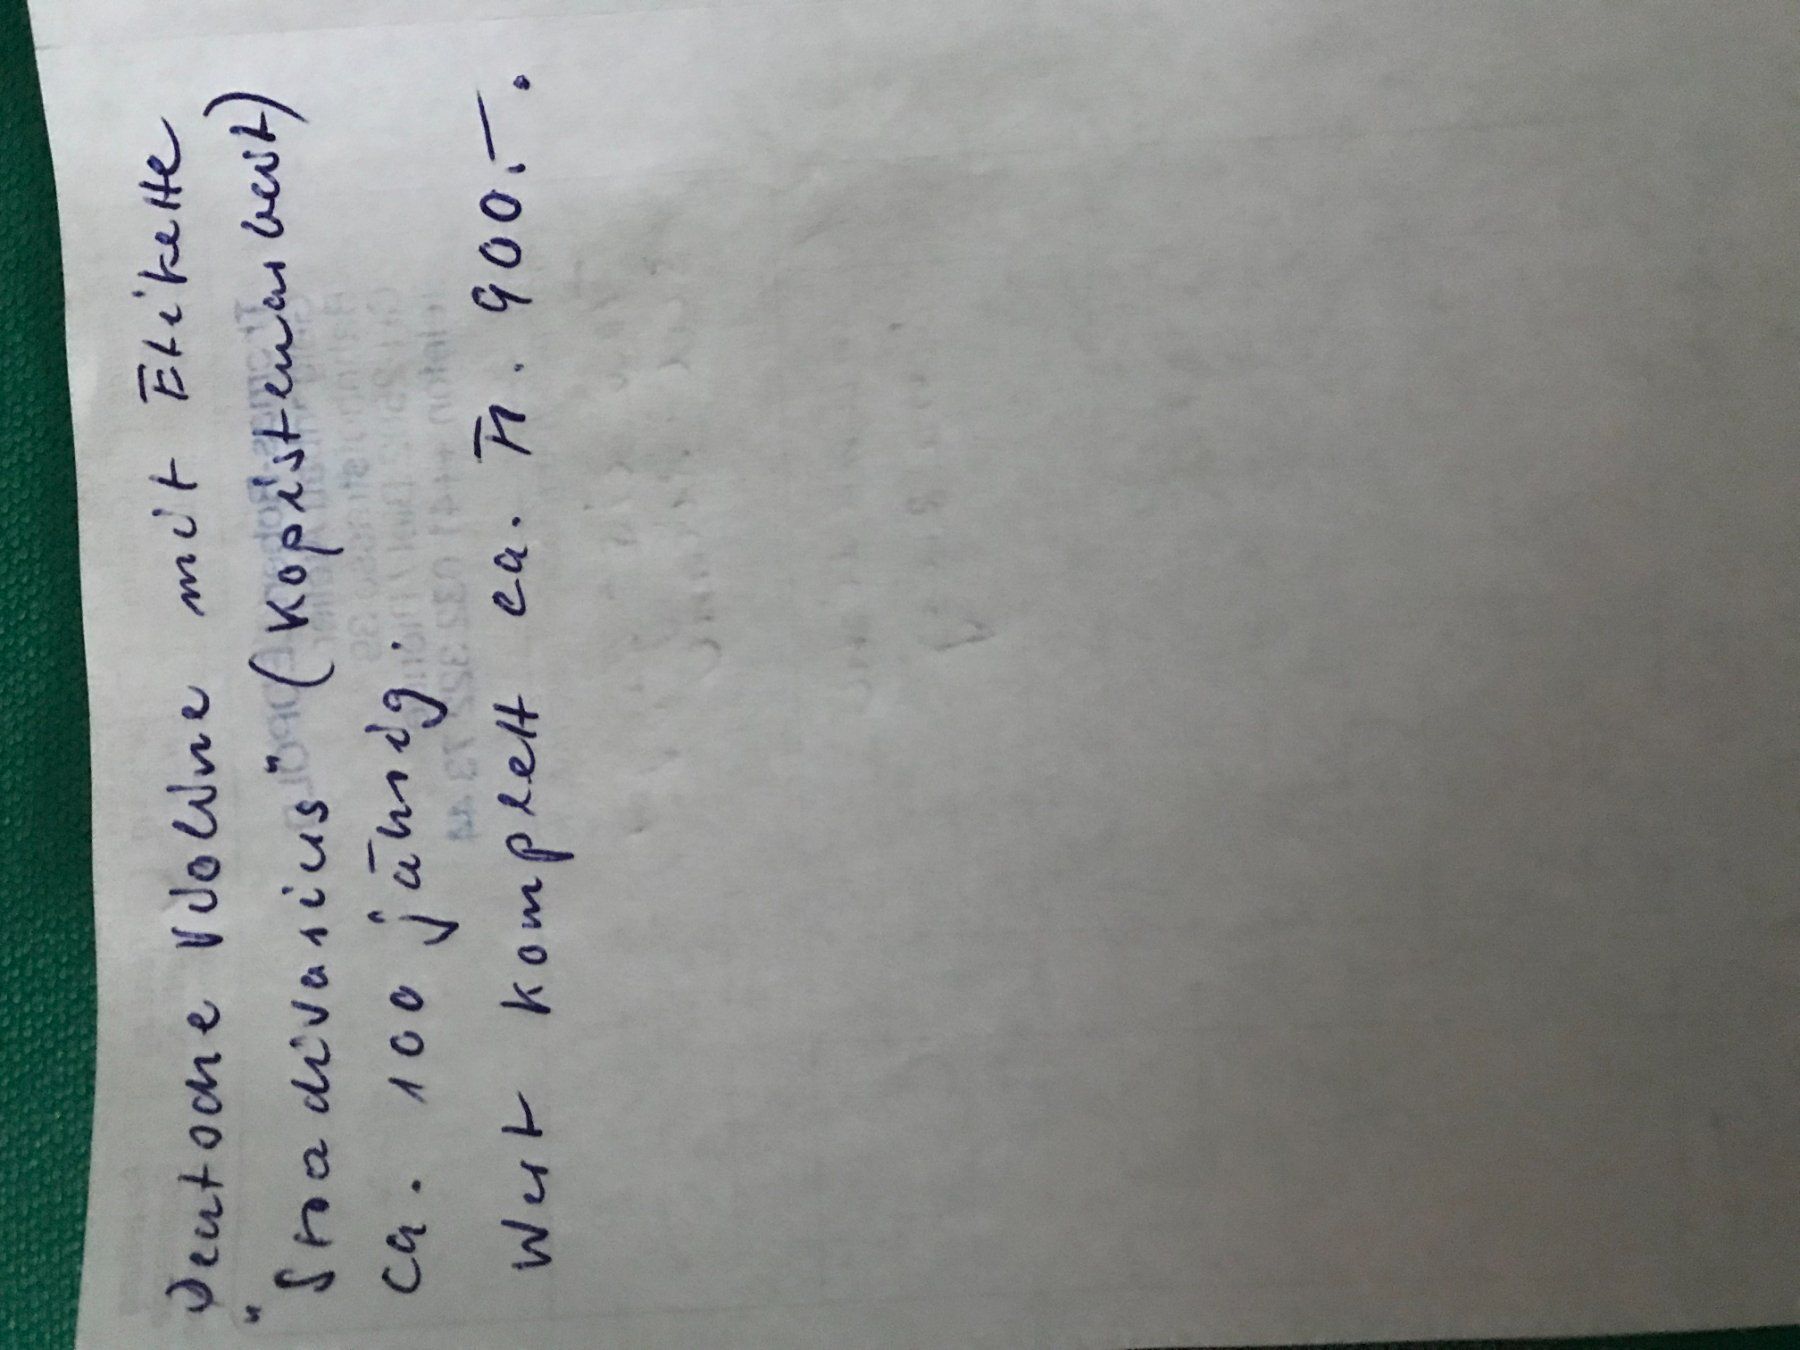 Deutsche Violine mit Etikette
"Stradivarius" (Kopistenarbeit)
ca. 100 jährig.
Wert komplett ca. Fr. 900.–.